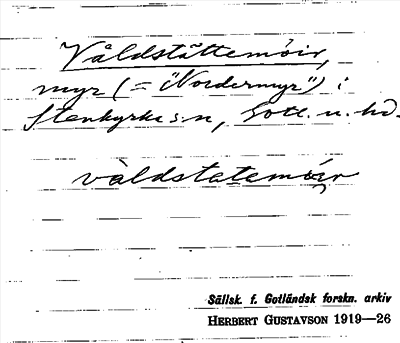 Våldstättemöir,
myr (= "Nordermyr") i
Stenkyrka s:n, Gotl. n. hd.
våldstatemöịr
Sällsk. f. Gotländsk forskn. arkiv
HERBERT GUSTAVSON 1919—26